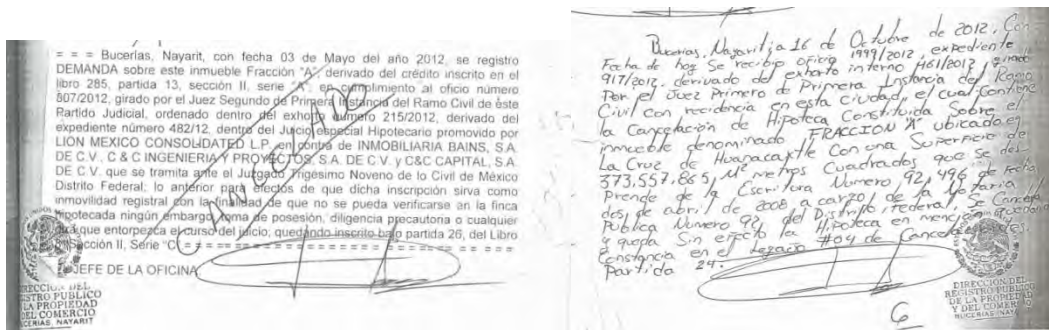 = = = Bucerías, Nayarit, con fecha 03 de Mayo del año 2012, se registro
DEMANDA sobre este inmueble Fracción "A", derivado del crédito inscrito en el
libro 285, partida 13, sección II, serie "A", en cumplimiento al oficio número
607/2012, girado por el Juez Segundo de Primera Instancia del Ramo Civil de éste
Partido Judicial, ordenado dentro del exhorto número 215/2012, derivado del
expediente número 482/12, dentro del Juicio especial Hipotecario promovido por
LION MEXICO CONSOLIDATED L.P. en contra de INMOBILIARIA BAINS, S.A.
DE C.V., C & C INGENIERIA Y PROYECTOS, S.A. DE C.V. y C&C CAPITAL, S.A.
DE C.V. que se tramita ante el Juzgado Trigésimo Noveno de lo Civil de México
Distrito Federal; lo anterior para efectos de que dicha inscripción sirva como
inmovilidad registral con la finalidad de que no se pueda verificarse an la finca
hipotecada ningún embargo, toma de posesión, diligencia precautoria o cualquier
que entorpezca el curso del juicio; quedando inscrito bajo partida 26, del Libro
Sección II, Serie "C
CANCELADO
JEFE DE LA OFICINA
DIRECCION DEL
REGISTRO PUBLICO
DE LA PROPIEDAD
Y DEL COMERCIO
BUCERIAS, NAYARIT
Bucerias, Nayarit; a 16 de Octubre de 2012. Con
Fecha de hoy Se recibio oficio 1999/2012, expediente
917/2012. derivado del exhorto interno 461/2012, girado
Por el Juez Primero de Primera Instancia del Ramo
Civil con residencia en esta Ciudad, el cual Contiene
la Cancelación de Hipoteca Constituida Sobre el
inmueble denominado FRACCION "A" ubicada en
La Cruz de Huanacaxtle Con una Superficie de
373,557.865 M² metros Cuadrados que se des
Prende de la Escritura Numero 92,496 de fecha
dos de abril de 2008 a cargo de la Notaria
Publica Numero 92 del Distrito Federal, Se Cancela
y queda Sin efecto la Hipoteca en mencion
Constancia en el Legajo #04 de
Partida 24.
DIRECCION DEL
REGISTRO PUBLICO
DE LA PROPIEDAD
Y DEL COMERCIO
BUCERIAS, NAY
6